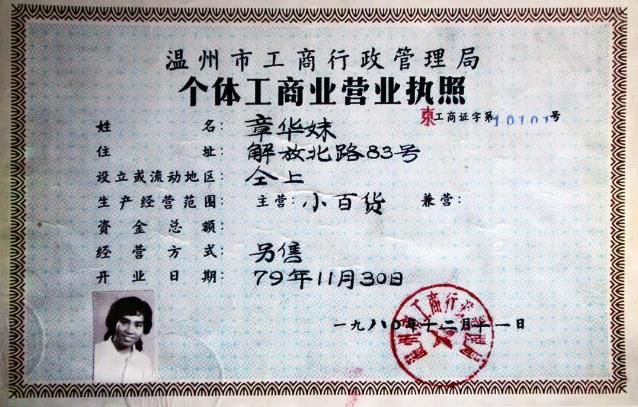 温州市工商行政管理局
个体工商业营业执照
東工商证字第10101号
姓名：章华妹
住址：解放北路83号
设立或流动地区：仝上
生产经营范围：主营：小百货 兼营：
资金总额：
经营方式：另售
开业日期：79年11月30日
一九八〇年十二月十一日
温州市工商行政管理局